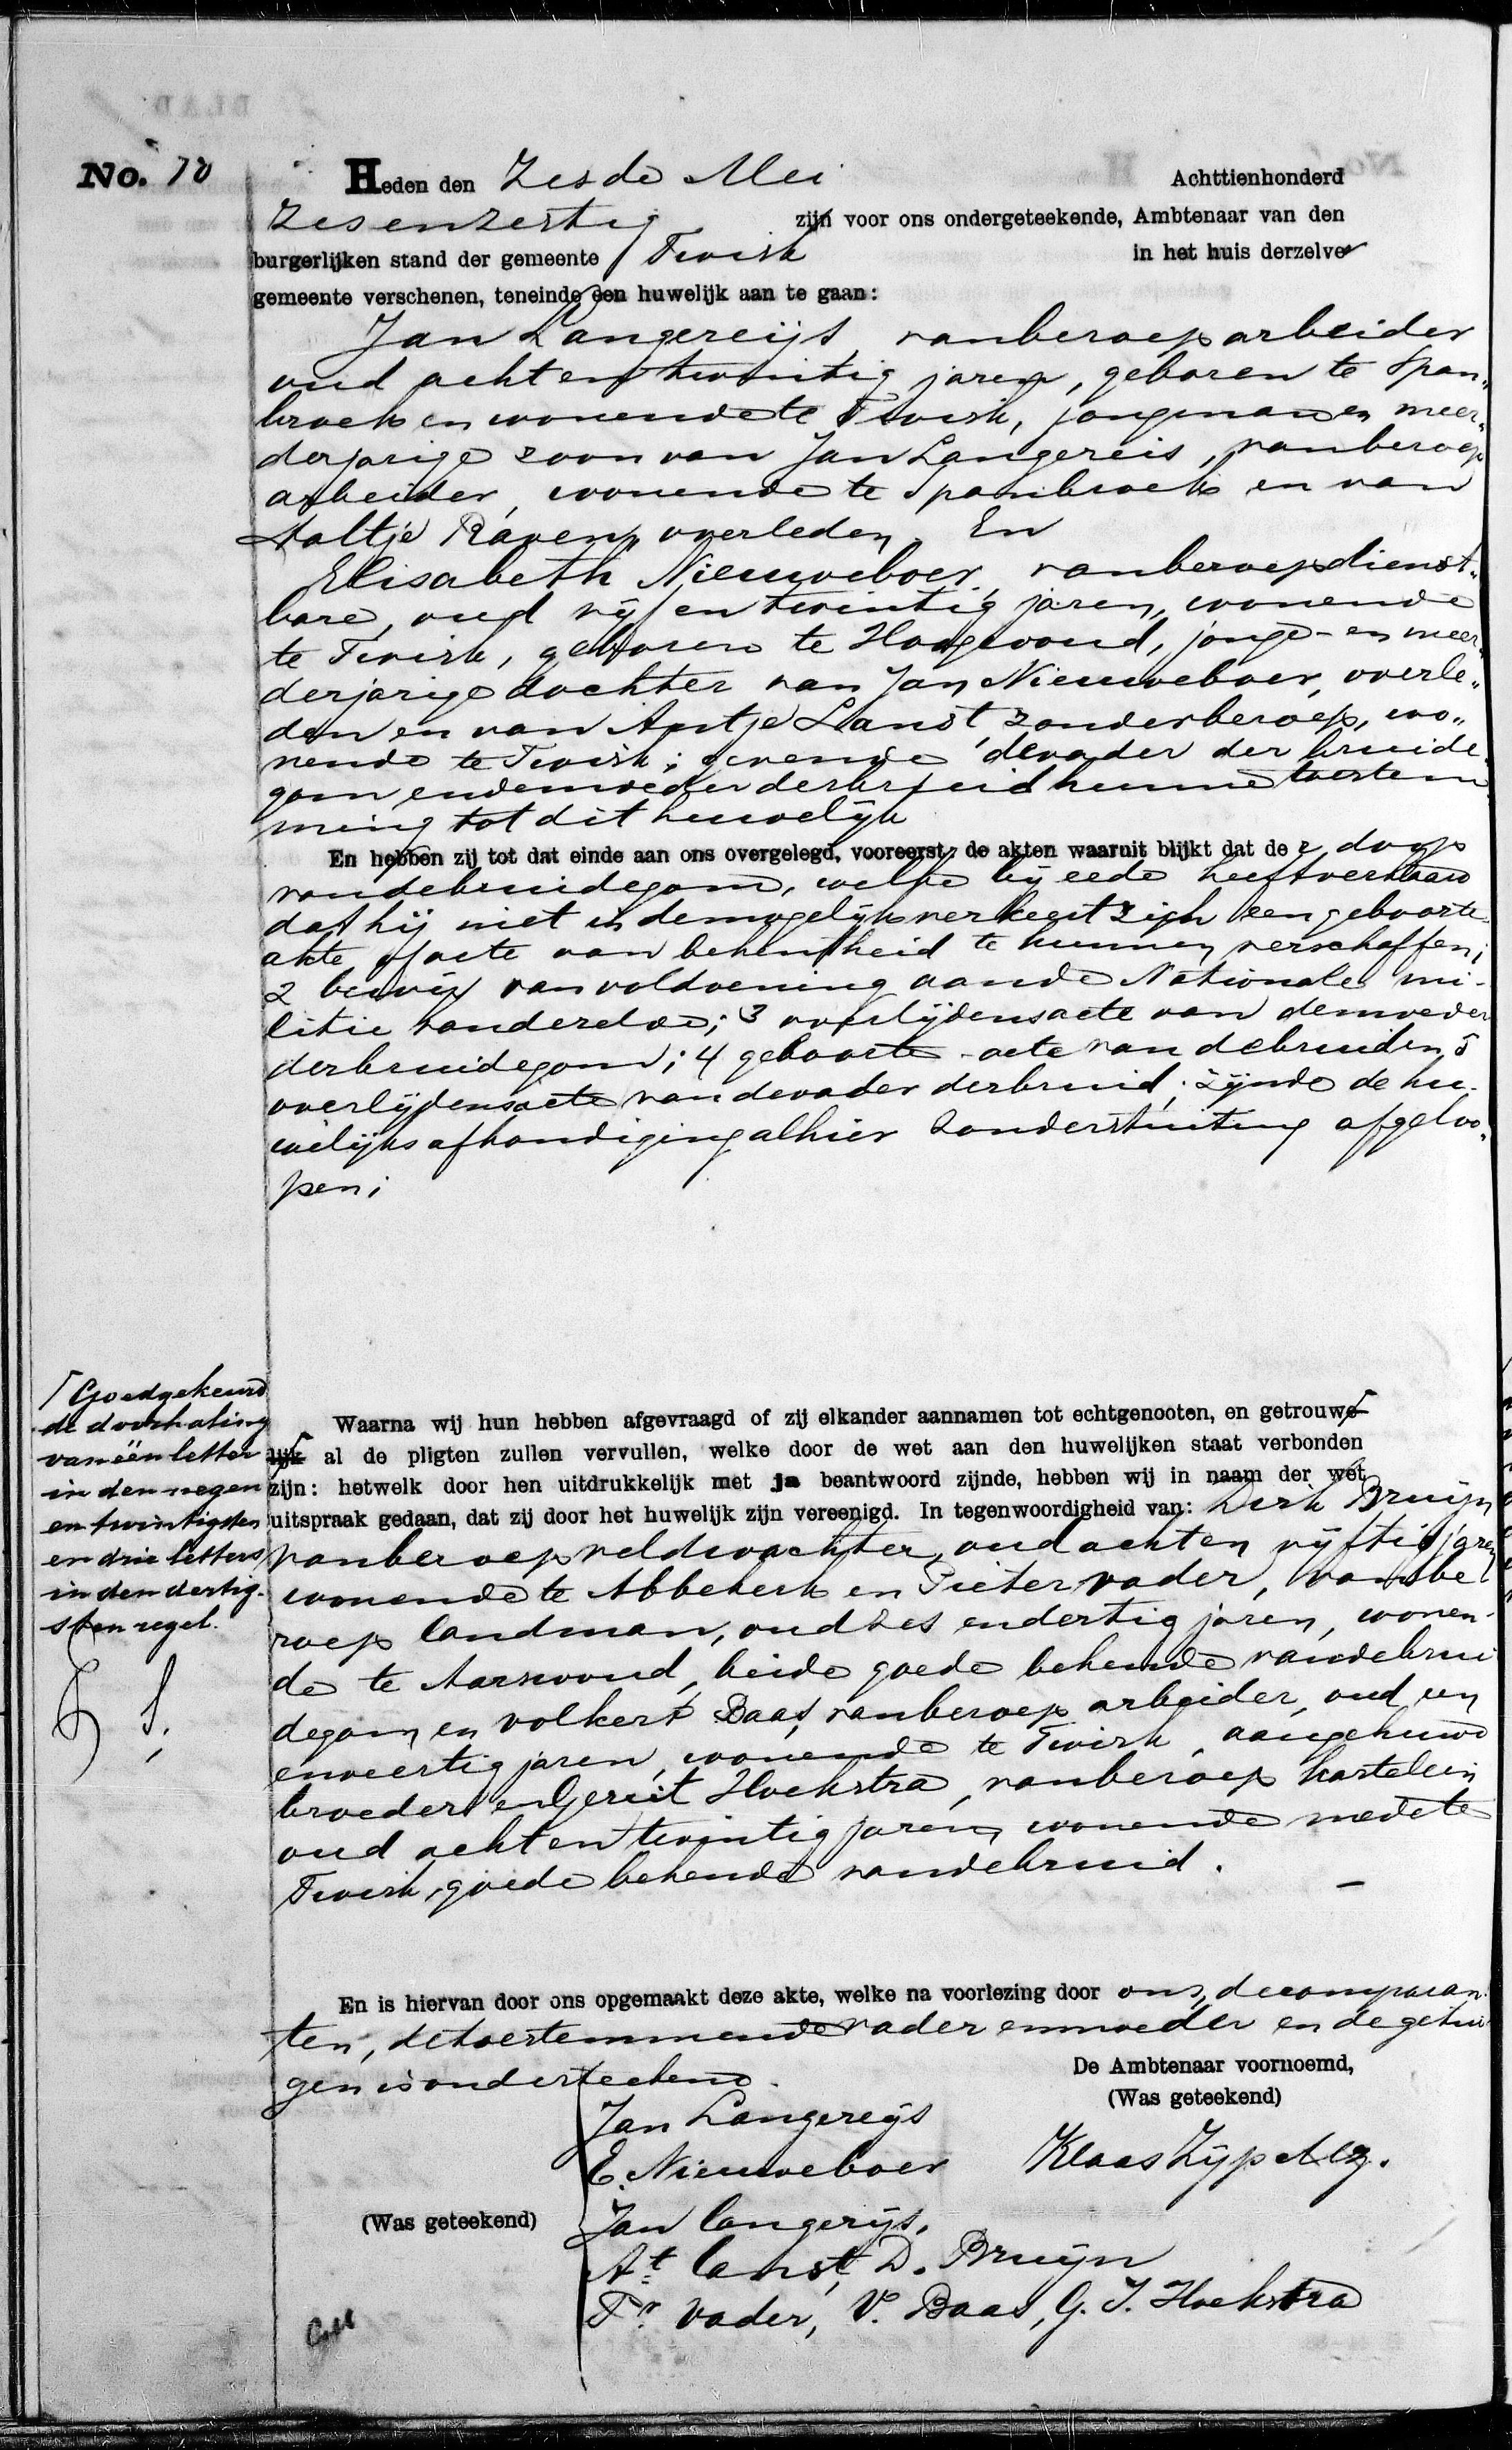 No. 10
Heden den Zesde Mei Achttienhonderd
zesenzestig zijn voor ons ondergeteekende, Ambtenaar van den
burgerlijken stand der gemeente Twisk in het huis derzelver
gemeente verschenen, teneinde een huwelijk aan te gaan:
Jan Langereijs vanberoep arbeider
oud acht en twintig jaren, geboren te Span„
broek en wonende te Twisk, jongman en meer„
derjarige zoon van Jan Langereis, vanberoep
arbeider, wonende te Spanbroek en van
Aaltje Raven, overleden. En
Elisabeth Nieuweboer, vanberoep dienst„
bare, oud vijf en twintig jaren, wonende
te Twisk, geboren te Hoogwoud, jonge- en meer„
derjarige dochter van Jan Nieuweboer, overle„
den en van Antje Lanst, zonder beroep, wo„
nende te Twisk; gevende de vader der bruide
gom en de moeder der bruid hunne toestem
ming tot dit huwelijk
En hebben zij tot dat einde aan ons overgelegd, vooreerst: de akten waaruit blijkt dat de doop
van de bruidegom, welke bij eede heeft verklaard
dat hij niet in de mogelijk verkeert zich een geboorte
akte of acte van bekentheid te kunnen verschaffen;
2 bewijs van voldoening aan de Nationale mi-
litie van derelve; 3 overlijdensacte van de moeder
der bruidegom; 4 geboorte-acte van de bruid en 5
overlijdensacte van de vader der bruid; zijnde de hu-
welijks afkondiging alhier zonder stuiting afgeloo„
pen;
Γ Goedgekeurd
de doorhaling
van één letter
in den negen
en twintigsten
en drie letters
in den dertig-
sten regel.
Waarna wij hun hebben afgevraagd of zij elkander aannamen tot echtgenooten, en getrouwe
lijk al de pligten zullen vervullen, welke door de wet aan den huwelijken staat verbonden
zijn: hetwelk door hen uitdrukkelijk met ja beantwoord zijnde, hebben wij in naam der wet
uitspraak gedaan, dat zij door het huwelijk zijn vereenigd. In tegenwoordigheid van: Dirk Bruijn
vanberoep veldwachter, oud acht en vijftig jaren
wonende te Abbekerk en Pieter Vader, van be
roep landman, oud zes en dertig jaren, wonen-
de te Aarswoud, beide goede bekende van de brui
degom en Volkert Baas, vanberoep arbeider, oud een
en veertig jaren, wonende te Twisk, aangehuwd
broeder en Gerrit Hoekstra, vanberoep kastelein
oud acht en twintig jaren wonende mede te
Twisk, goede bekende van de bruid.
En is hiervan door ons opgemaakt deze akte, welke na voorlezing door ons, de comparan
ten, de toestemmende vader en moeder en de getui
gen is onderteekend.
De Ambtenaar voornoemd,
(Was geteekend)
Jan Langereijs
E. Nieuweboer Klaas Zijp Mz.
(Was geteekend) Jan Langerijs,
At Lanst, D. Bruijn
Pr Vader, V. Baas, G. J. Hoekstra